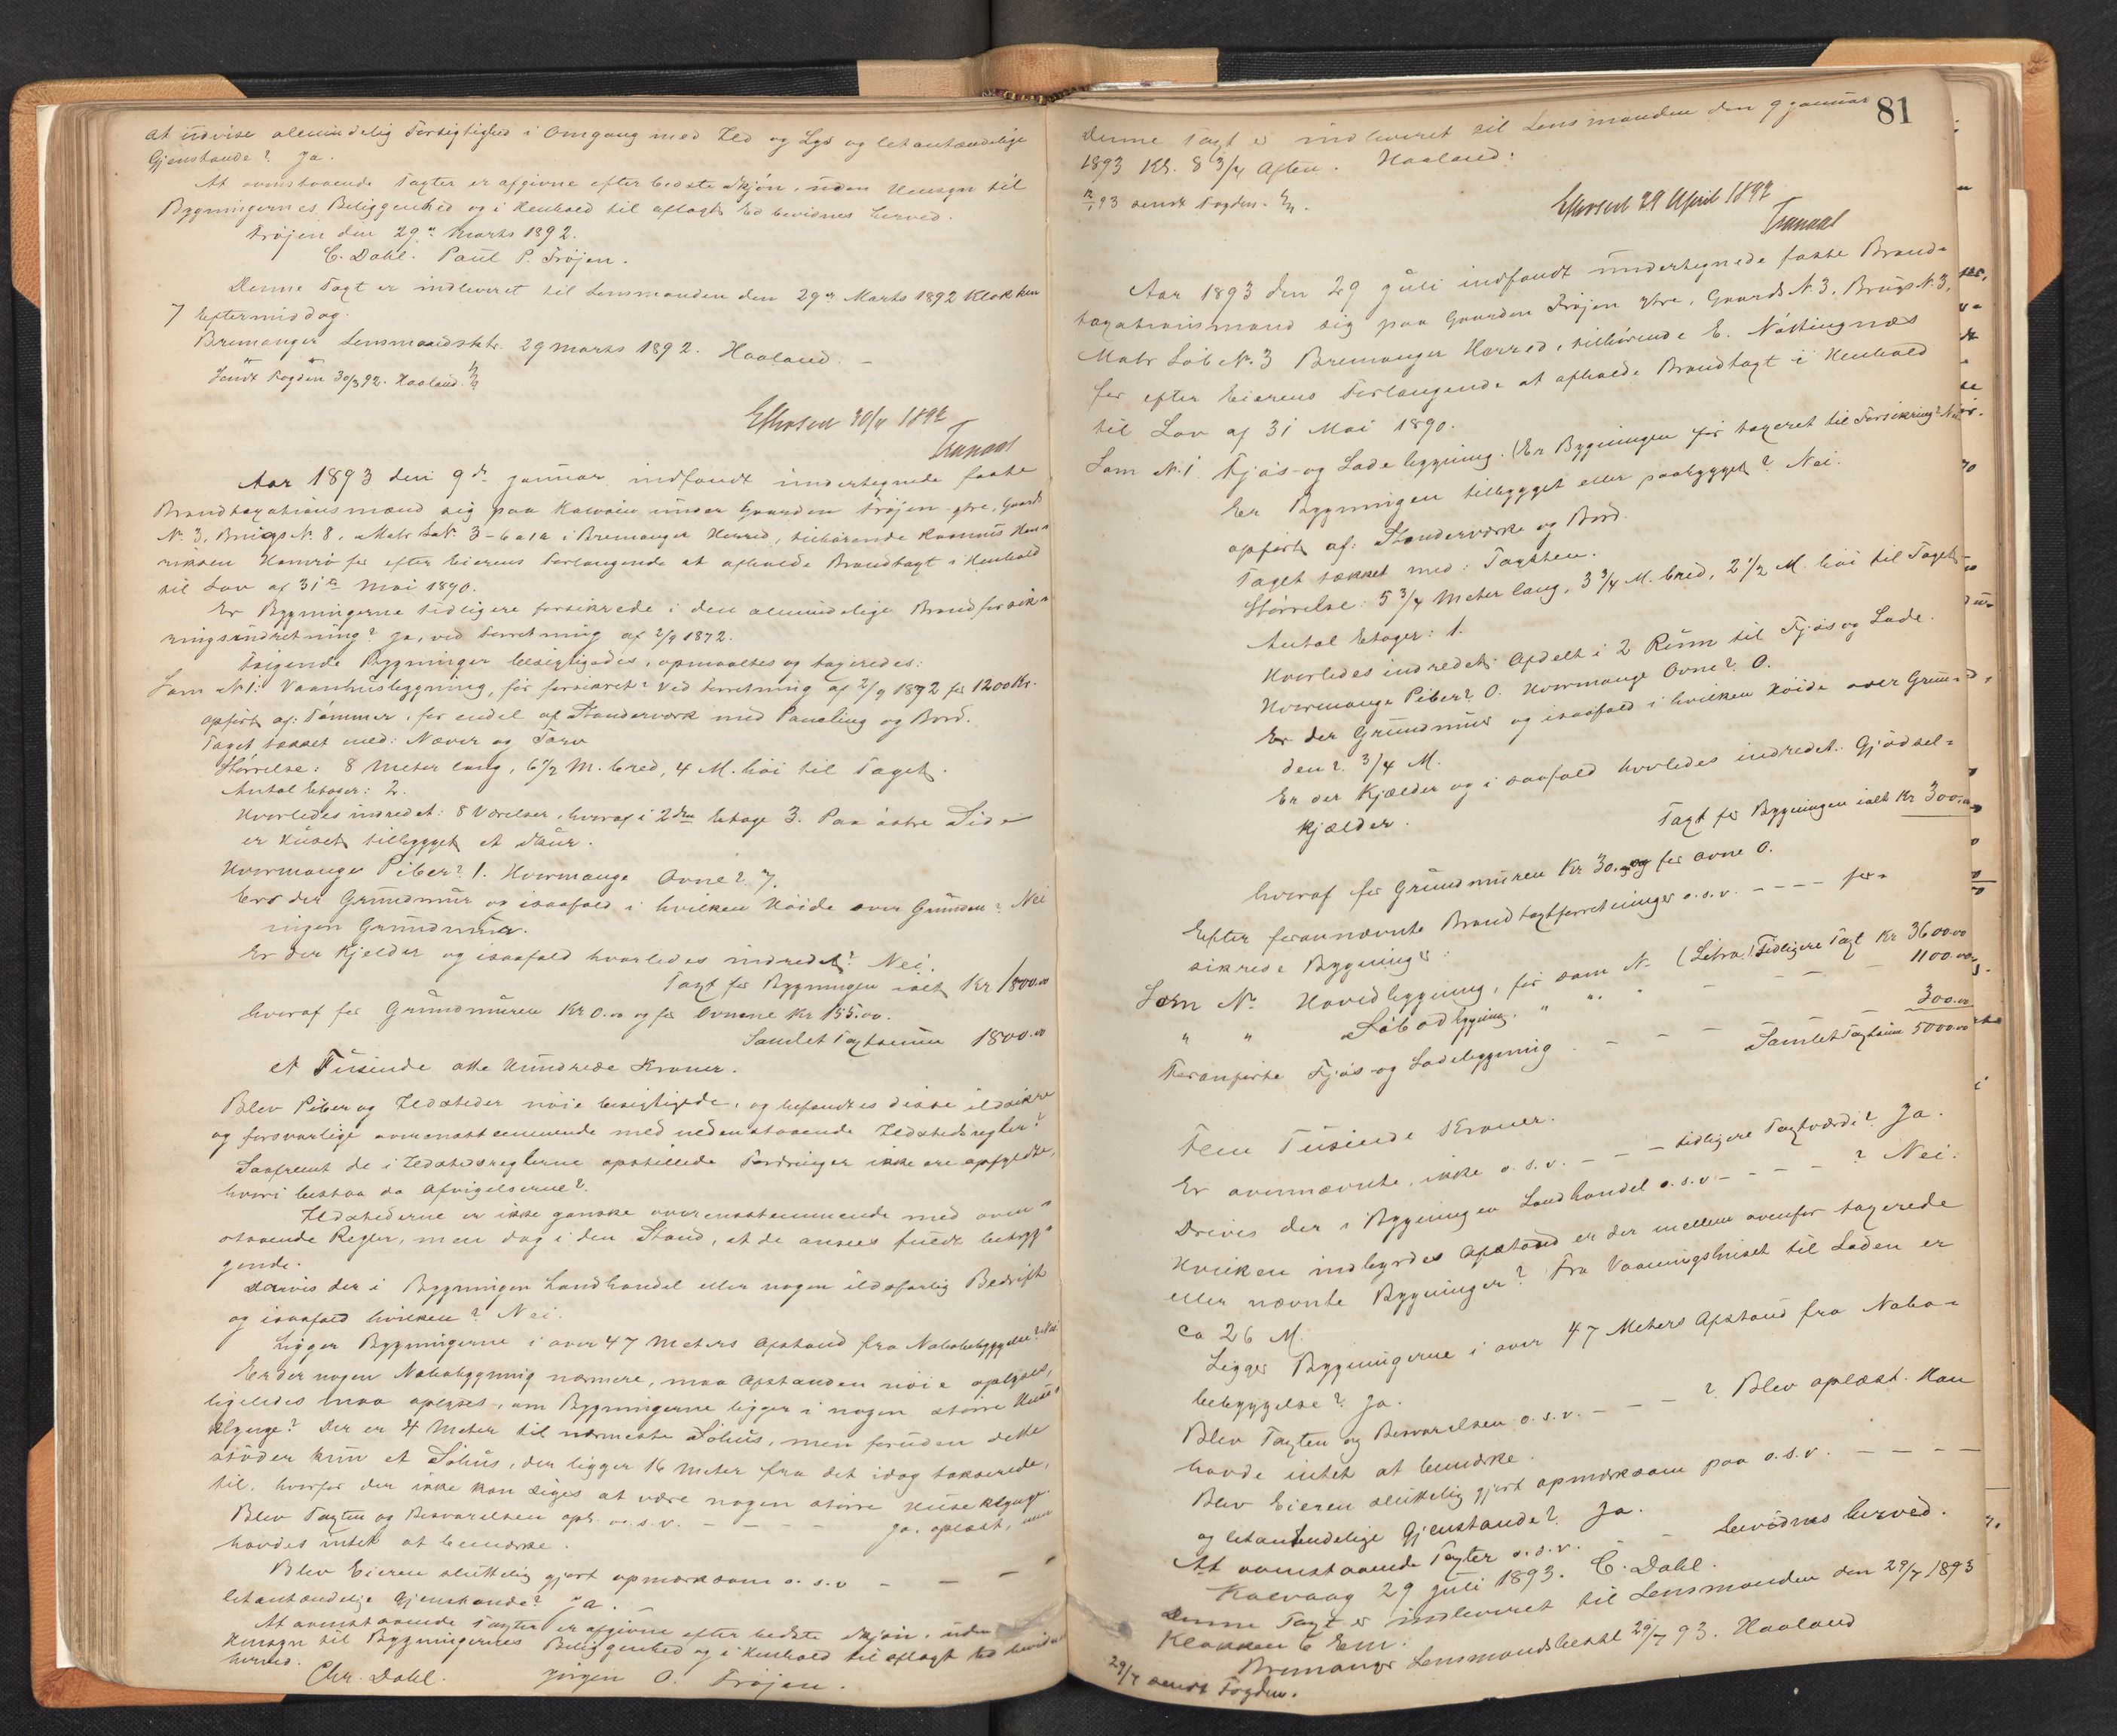 at udvise almindelig Forsigtighed i Omgang med Ild og Lys og letantændelige
Gjenstande? Ja.
At ovenstaaende Taxter er afgivne efter bedste Skjøn, uden Hensyn til
Bygningernes Beliggenhed og i Henhold til aflagt Ed bevidnes herved.
Frøjen den 29de Marts 1892.
C. Dahl. Paul P. Frøjen.
Denne Taxt er indleveret til Lensmanden den 29de Marts 1892 Klokken
7 Eftermiddag.
Bremanger Lensmandsbest. 29 Marts 1892. Haaland.
Sendt Fogden 30/3 92. Haaland.
1892
Aar 1893 den 9de Januar indfandt undertegnede faste
Brandtaxationsmænd sig paa Kalvøien under Gaarden Frøjen ytre, Gaards
No. 3, Brugs No. 8, Matr. LNo. 3-6a1a i Bremanger Herred, tilhørende Rasmus Hen=
riksen Hamrø for efter Eierens Forlangende at afholde Brandtaxt i Henhold
til Lov af 31te Mai 1890.
Er Bygningerne tidligere forsikrede i den almindelige Brandforsik=
ringsindretning? Ja, ved Forretning af 2/9 1872.
Følgende Bygninger besigtigedes, opmaaltes og taxeredes:
Som No 1: Vaanhusbygning, før forsikret? Ved Forretning af 2/9 1872 for 1200 Kr.
opført af: Tømmer, for endel af Stenderværk med Paneling og Bord.
Taget tækket med: Næver og Torv
Størrelse: 8 Meter lang, 6 1/2 M. bred, 4 M. høi til Taget.
Antal Etager: 2.
Hvorledes indredet: 8 Værelser, hvoraf i 2den Etage 3. Paa østre Side
er Huset tilbygget et Skur.
Hvormange Piber? 1. Hvormange Ovne? 7.
Er der Grundmur og isaafald i hvilken Høide over Grunden? Nei
ingen Grundmur.
Er der Kjelder og isaafald hvorledes indredet? Nei.
Taxt for Bygningen ialt Kr 1800.00
hvoraf for Grundmuren Kr 0.00 og for Ovnene Kr 155.00.
Samlet Taxtsum 1800.00
et Tusinde otte Hundrede Kroner.
Blev Piber og Ildsteder nøie besigtigede, og befandtes disse ildsikre
og forsvarlige overensstemmende med nedenstaaende Ildstedsregler?
Saafremt de i Ildstedsreglerne opstillede Fordringer ikke ere opfyldte,
hvori bestaa da Afvigelserne?
Ildstederne er ikke ganske overensstemmende med oven=
staaende Regler, men dog i den Stand, at de ansees fuldt betryg=
gende.
Drives der i Bygningen Landhandel eller nogen ildsfarlig Bedrift
og isaafald hvilken? Nei.
Ligger Bygningerne i over 47 Meters Afstand fra Nabobebyggelse? Nei
Er der nogen Nabobygning nærmere, maa Afstanden nøie oplyses,
ligeledes maa oplyses, om Bygningerne ligger i nogen større Huse=
klynge? Der er 4 Meter til nærmeste Søhus, men foruden dette
støder kun et Søhus, der ligger 16 Meter fra det idag takserede,
til, hvorfor der ikke kan siges at være nogen større Huseklynge.
Blev Taxten og Besvarelsen opl. o.s.v. – – – – Ja, oplæst, men
havdes intet at bemærke.
Blev Eieren sluttelig gjort opmærksom o.s.v – – –
letantændelige Gjenstande? Ja.
At ovenstaaende Taxter er afgivne efter bedste Skjøn, uden
Hensyn til Bygningernes Beliggenhed og i Henhold til aflagt Ed bevidnes
herved.
Chr. Dahl. Jørgen O. Frøjen.
81
Denne Taxt er indleveret til Lensmanden den 9 Januar
1893 Kl. 8 3/4 Aften. Haaland.
sendt Fogden.
29 April 1892
Aar 1893 den 29 Juli indfandt undertegnede faste Brand=
taxationsmænd sig paa Gaarden Frøjen ytre, Gaards N. 3, Brugs N. 3,
Matr Løb No. 3 Bremanger Herred, tilhørende E. Nøttingnæs
for efter Eierens Forlangende at afholde Brandtaxt i Henhold
til Lov af 31 Mai 1890.
Som N. 1 Fjøs- og Ladebygning. (Er Bygningen før taxeret til Forsikring? Nei
Er Bygningen tilbygget eller paabygget? Nei.
opført af: Stenderværk og Bord.
Taget tækket med: Tagsten.
Størrelse: 5 3/4 Meter lang, 3 3/4 M. bred, 2 1/2 M. høi til Taget.
Antal Etager: 1.
Hvorledes indredet: Afdelt i 2 Rum til Fjøs og Lade.
Hvormange Piber? 0. Hvormange Ovne? 0.
Er der Grundmur og isaafald i hvilken Høide over Grun=
den? 3/4 M.
Er der Kjælder og i saafald hvorledes indredet: Gjødsel=
kjælder.
Taxt for Bygningen ialt Kr 300.00
hvoraf for Grundmuren Kr 30.00 og for Ovne 0.
Efter forannævnte Brandtaxtforretninger o.s.v. – – – – for=
sikrede Bygninger:
Som No Hovedbygning, før som N. (Litra) Tidligere Taxt Kr 3600.00
" " Søbodbygning. " " " – – – – 1100.00
Foranførte Fjøs- og Ladebygning – – – – 300.00
Samlet Taxtsum 5000.00
Fem Tusinde Kroner.
Er ovennævnte, ikke o.s.v. – – – tidligere Taxtværdi? Ja.
Drives der i Bygningen Landhandel o.s.v. – – – – ? Nei.
Hvilken indbyrdes Afstand er der mellem ovenfor taxerede
eller nævnte Bygninger? Fra Vaaningshuset til Laden er
ca 26 M.
Ligger Bygningerne i over 47 Meters Afstand fra Nabo=
bebyggelse? Ja.
Blev Taxten og Besvarelsen o.s.v. – – – ? Blev oplæst. Han
havde intet at bemærke.
Blev Eieren sluttelig gjort opmærksom paa o.s.v. – – – –
og letantændelige Gjenstande? Ja.
At ovenstaaende Taxter o.s.v. – bevidnes herved.
Kalvaag 29 Juli 1893. C. Dahl.
Denne Taxt er indleveret til Lensmanden den 29/7 1893
Klokken 6 Em.
Bremanger Lensmandsbestil 29/7 93. Haaland
29/7 sendt Fogden.